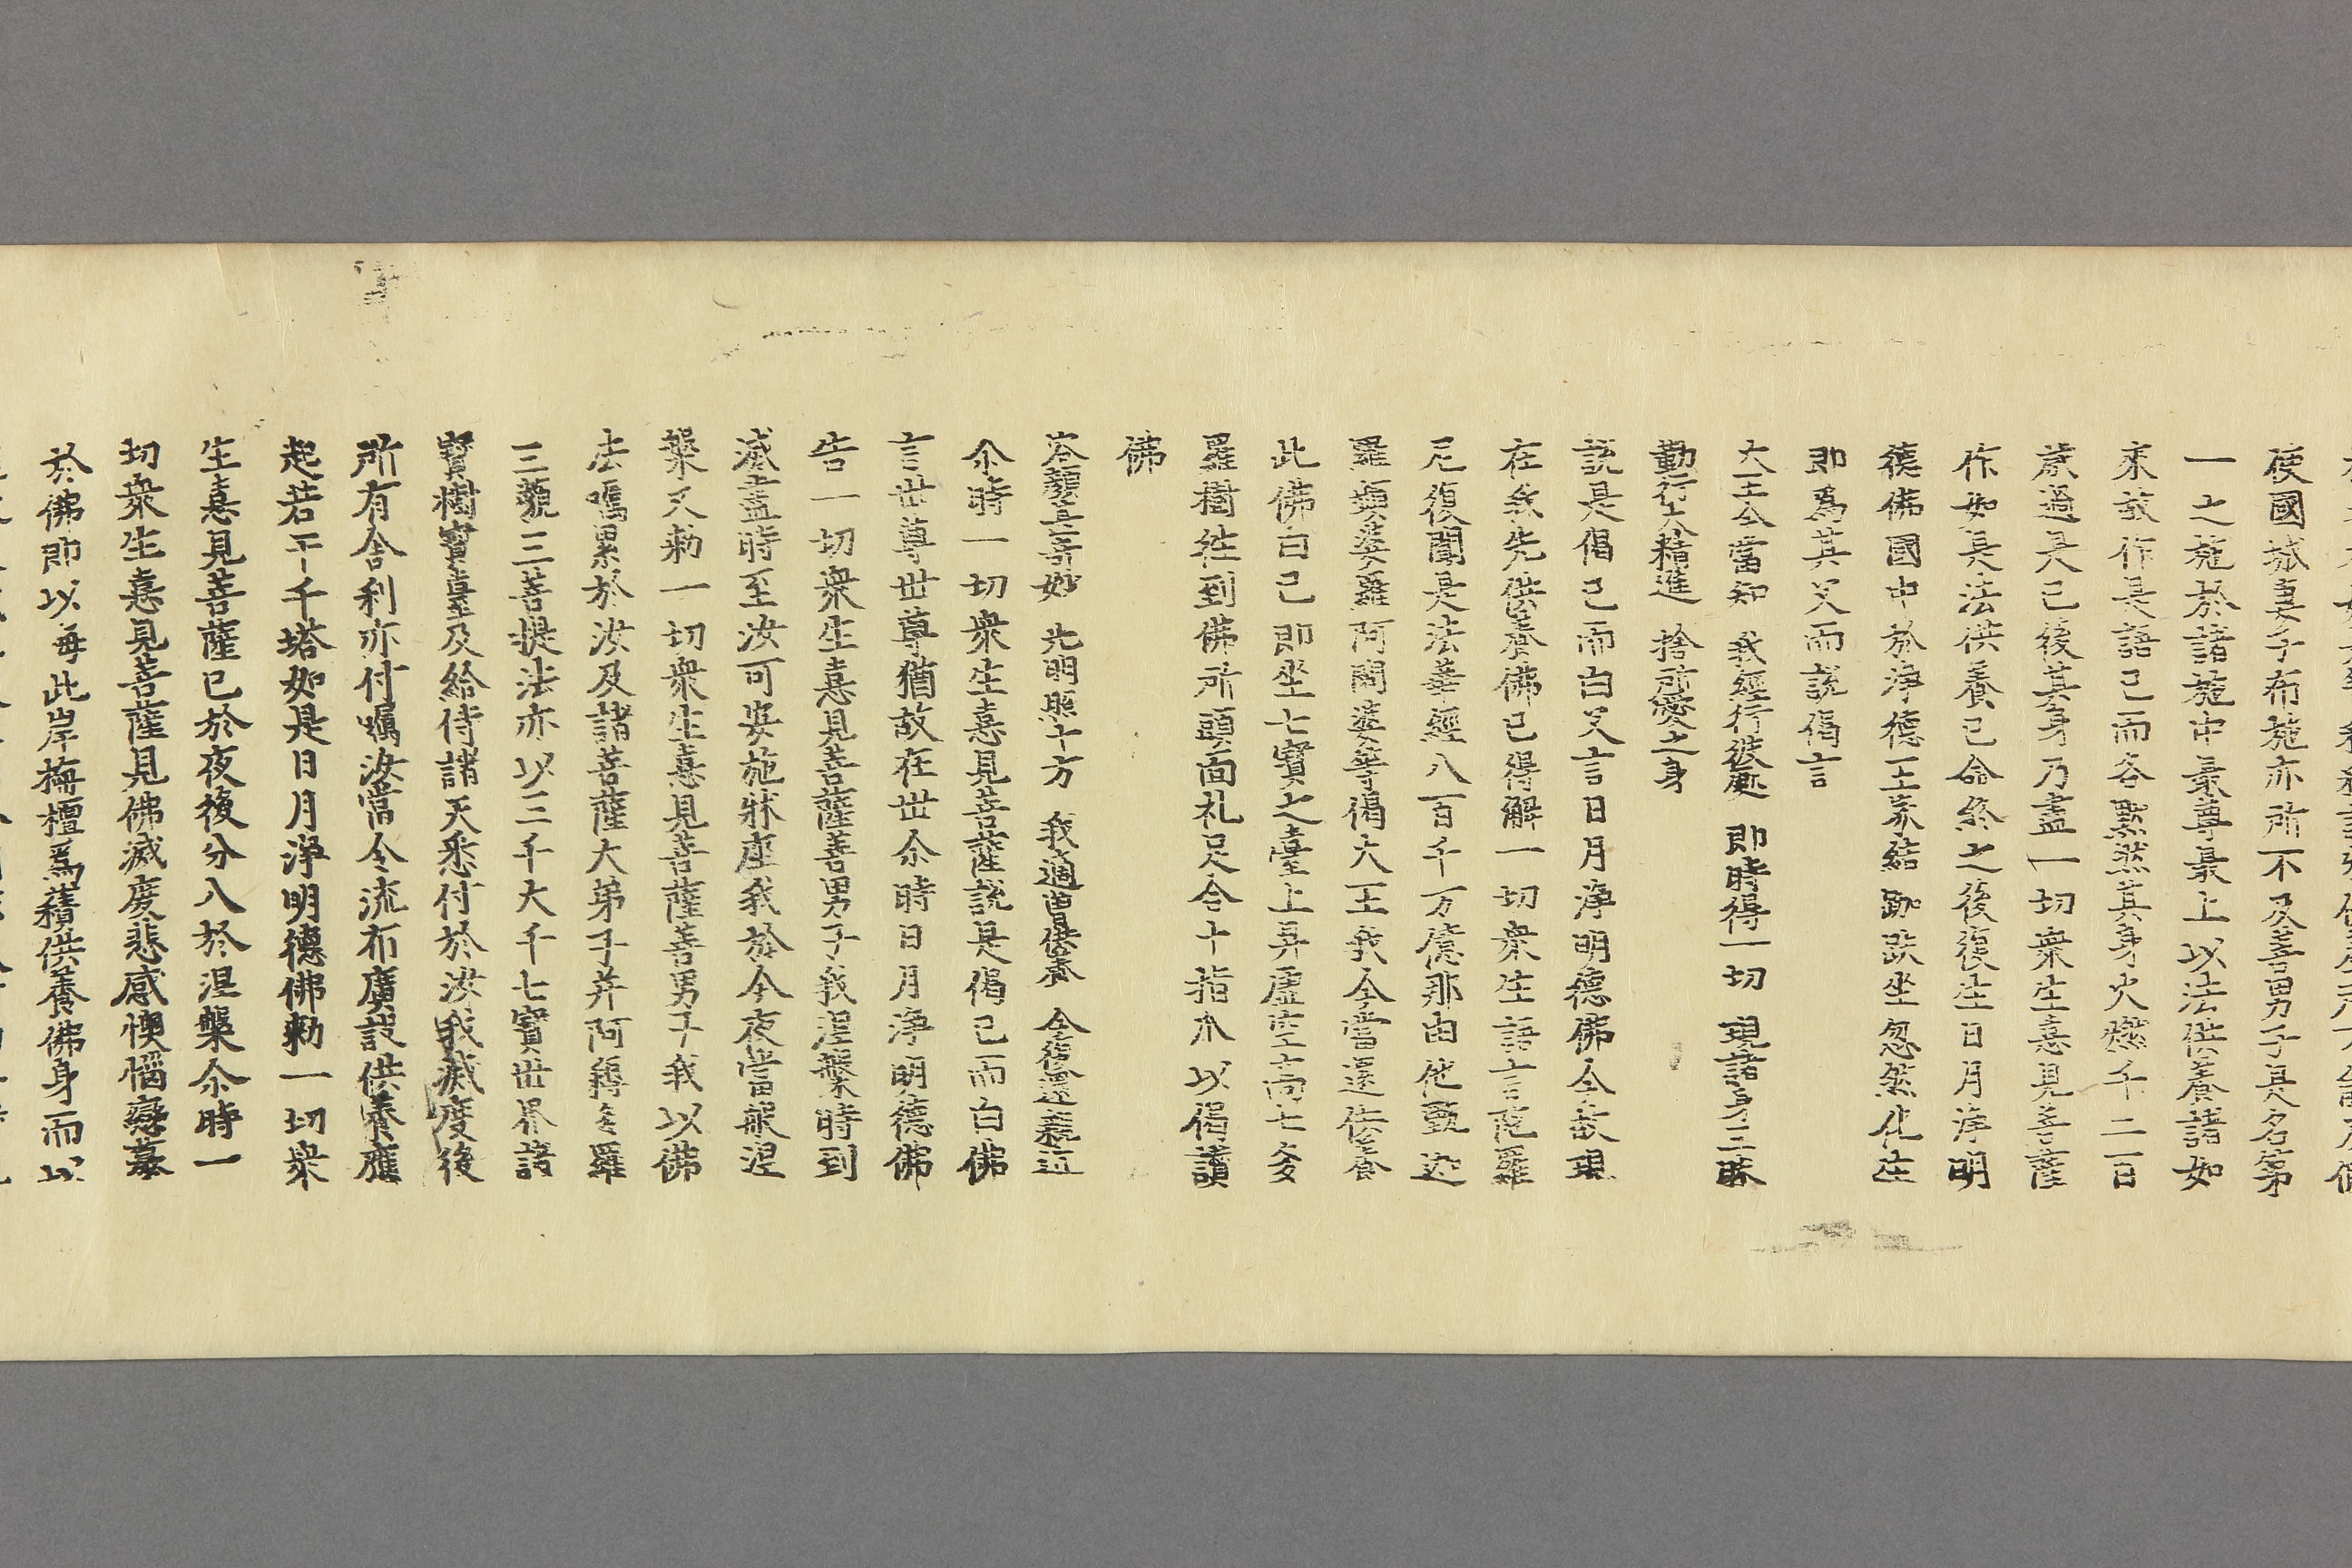 使國城妻子布施亦所不及善男子是名第
一之施於諸施中最尊最上以法供養諸如
來故作是語已而各默然其身火燃千二百
歲過是已後其身乃盡一切衆生憙見菩薩
作如是法供養已命終之後復生日月淨明
德佛國中於淨德王家結跏趺坐忽然化生
即爲其父而說偈言
大王今當知　我經行彼處　即時得一切　現諸身三昧
勤行大精進　捨所愛之身
說是偈已而白父言日月淨明德佛今故現
在我先供養佛已得解一切衆生語言陀羅
尼復聞是法華經八百千万億那由他甄迦
羅頻婆羅阿閦婆等偈大王我今當還供養
此佛白已即坐七寶之臺上昇虛空高七多
羅樹往到佛所頭面礼足合十指爪以偈讚
佛
容顏甚奇妙　光明照十方　我適曾供養　今復還親近
尒時一切衆生憙見菩薩說是偈已而白佛
言世尊世尊猶故在世尒時日月淨明德佛
告一切衆生憙見菩薩善男子我涅槃時到
滅盡時至汝可安施牀座我於今夜當般涅
槃又勅一切衆生憙見菩薩善男子我以佛
法囑累於汝及諸菩薩大弟子并阿耨多羅
三藐三菩提法亦以三千大千七寶世界諸
寶樹寶臺及給侍諸天悉付於汝我滅度後
所有舍利亦付囑汝當令流布廣設供養應
起若干千塔如是日月淨明德佛勅一切衆
生憙見菩薩已於夜後分入於涅槃尒時一
切衆生憙見菩薩見佛滅度悲感懊惱戀慕
於佛即以海此岸栴檀爲𧂐供養佛身而以